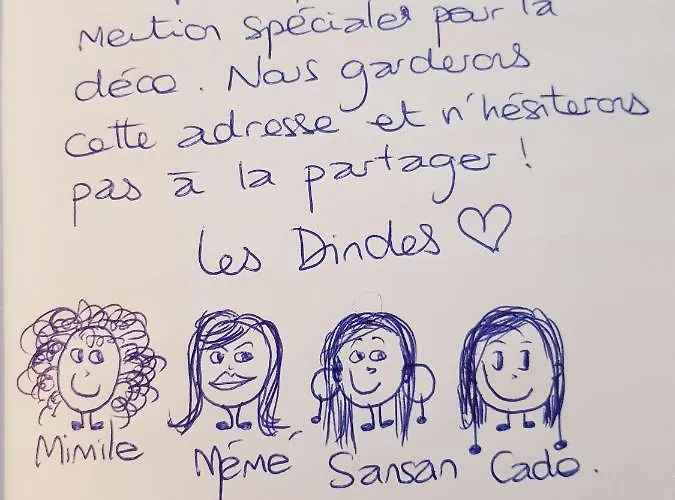 Mention spéciales pour la
déco. Nous garderons
cette adresse et n'hésiterons
pas à la partager !
Les Dindes ♡
Mimile Mémé Sansan Cado.